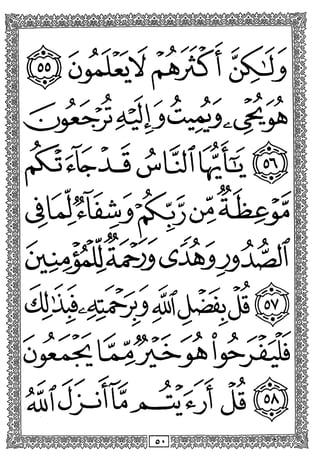 وَلَٰكِنَّ أَكْثَرَهُمْ لَا يَعْلَمُونَ ٥٥
هُوَ يُحْيِۦ وَيُمِيتُ وَإِلَيْهِ تُرْجَعُونَ
٥٦ يَٰٓأَيُّهَا ٱلنَّاسُ قَدْ جَآءَتْكُم
مَّوْعِظَةٌ مِّن رَّبِّكُمْ وَشِفَآءٌ لِّمَا فِى
ٱلصُّدُورِ وَهُدًى وَرَحْمَةٌ لِّلْمُؤْمِنِينَ
٥٧ قُلْ بِفَضْلِ ٱللَّهِ وَبِرَحْمَتِهِۦ فَبِذَٰلِكَ
فَلْيَفْرَحُوا۟ هُوَ خَيْرٌ مِّمَّا يَجْمَعُونَ
٥٨ قُلْ أَرَءَيْتُم مَّآ أَنزَلَ ٱللَّهُ
٥٠